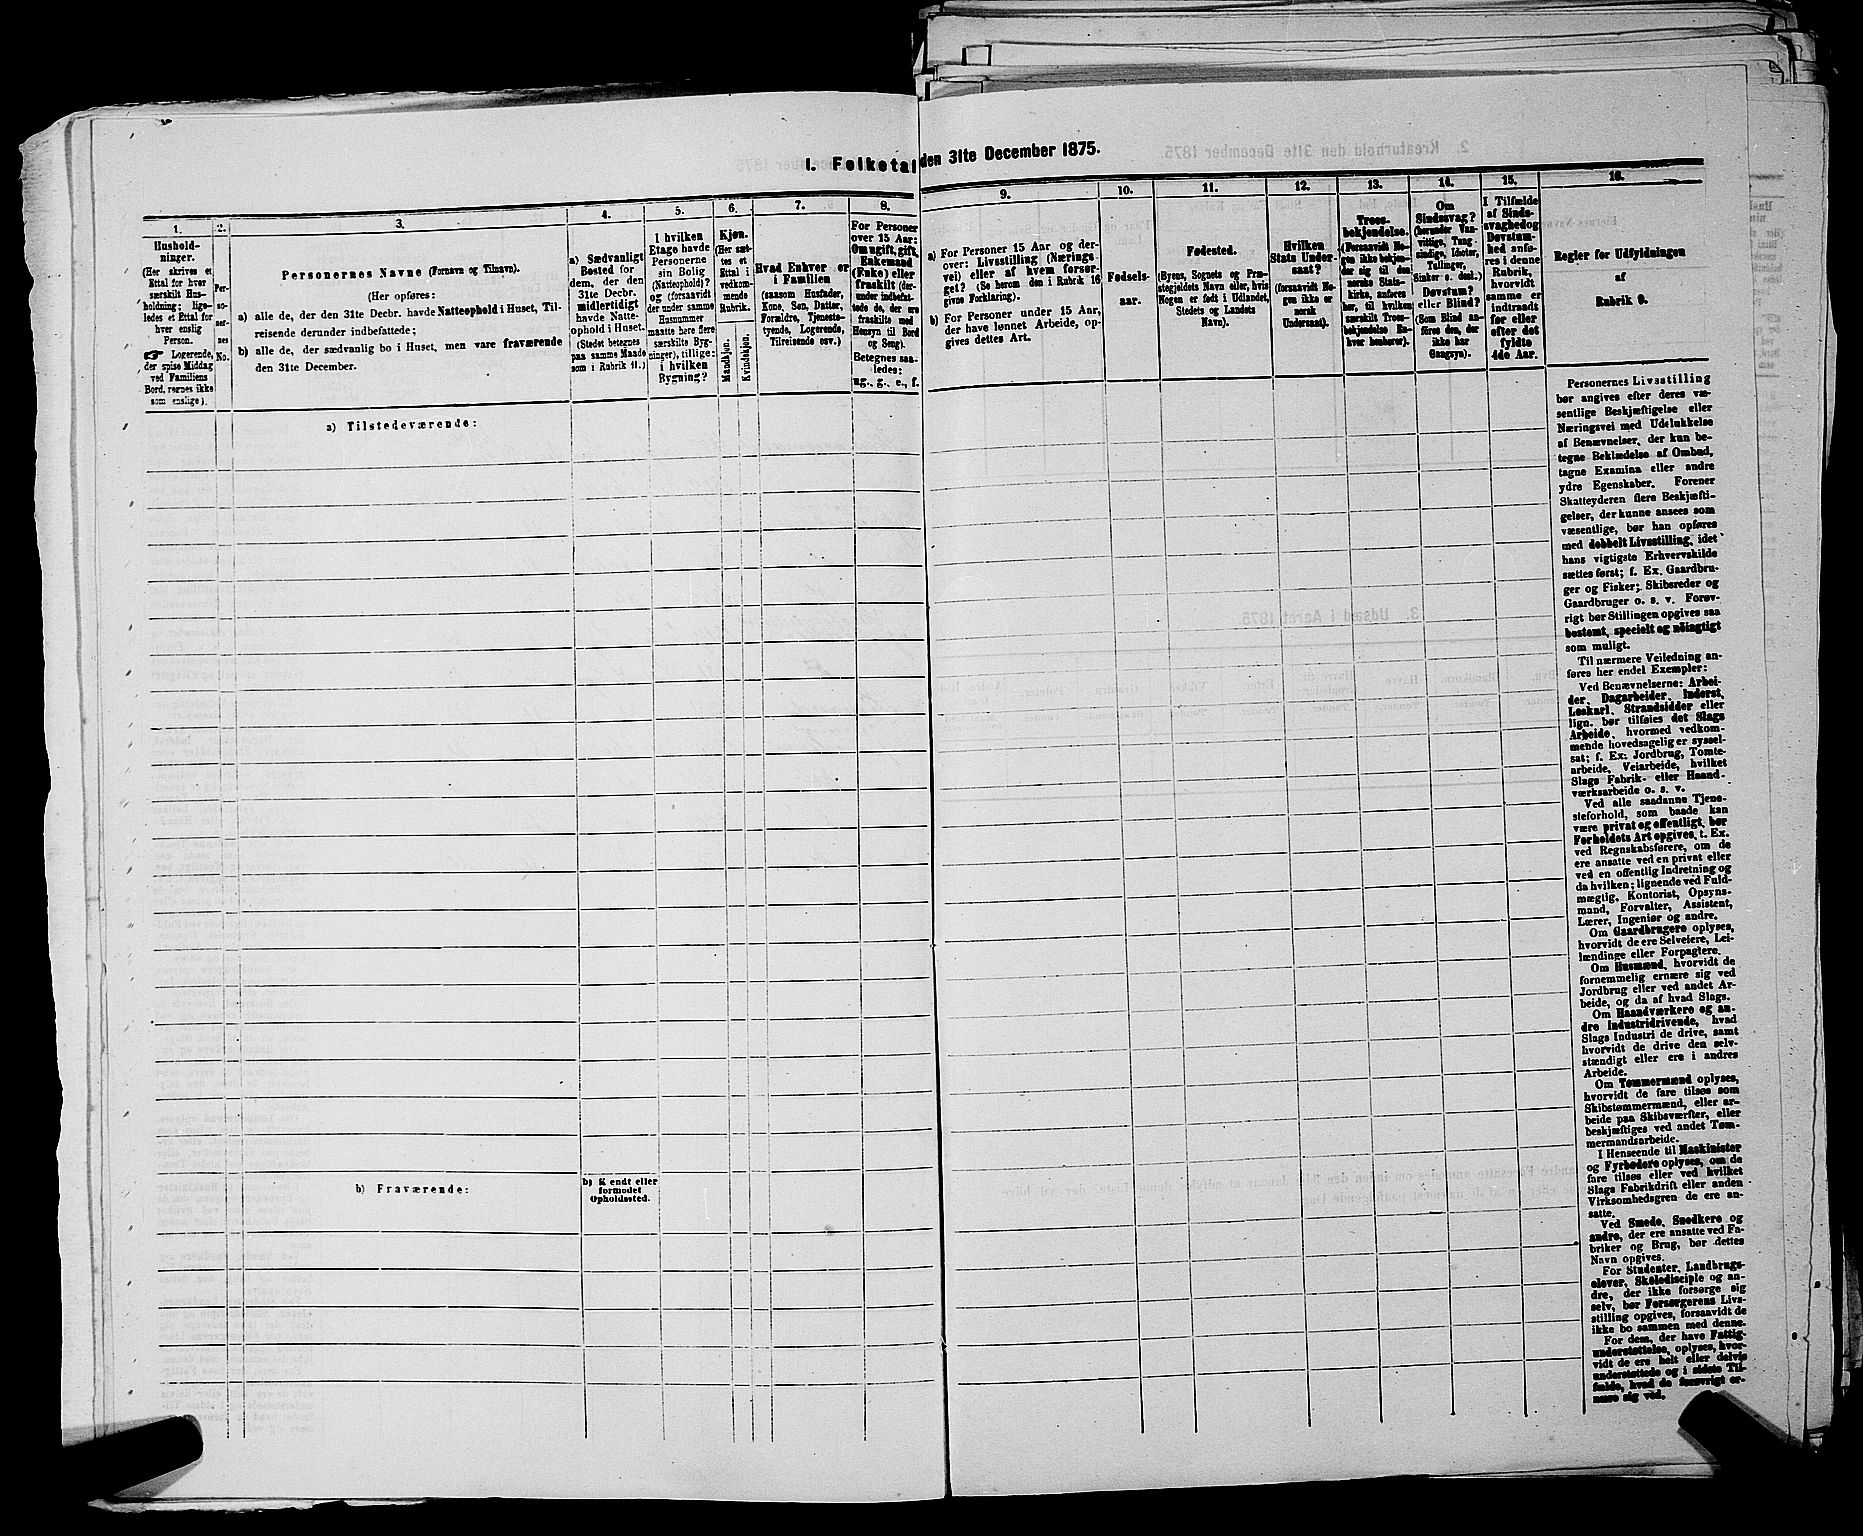 I. Folketal den 31te December 1875.
1.
Hushold-
ninger.
(Her skrives et
Ettal for hver
særskilt Hus-
holdning; lige-
ledes et Ettal for
hver enslig
Person.
☛ Logerende,
der spise Middag
ved Familiens
Bord, regnes ikke
som enslige).
2.
Per-
so-
ner-
nes
No.
3.
Personernes Navne (Fornavn og Tilnavn).
(Her opføres:
a) alle de, der den 31te Decbr. havde Natteophold i Huset, Til-
reisende derunder indbefattede;
b) alle de, der sædvanlig bo i Huset, men vare fraværende
den 31te December.
4.
a) Sædvanligt
Bosted for
dem, der den
31te Decbr.
midlertidigt
havde Natte-
ophold i Huset.
(Stedet betegnes
paa samme Maade
som i Rubrik 11.)
5.
I hvilken
Etage havde
Personerne
sin Bolig
(Natteophold)?
og (forsaavidt
der under samme
Husnummer
maatte være flere
særskilte Byg-
ninger), tillige:
i hvilken
Bygning?
6.
Kjøn.
(Her sæt-
tes et
Ettal i
vedkom-
mende
Rubrik.
Mandkjøn.
Kvindekjøn.
7.
Hvad Enhver er
i Familien
(saasom Husfader,
Kone, Søn, Datter,
Forældre, Tjeneste-
tyende, Logerende,
Tilreisende osv.)
8.
For Personer
over 15 Aar:
Om ugift, gift,
Enkemand
(Enke) eller
fraskilt (der-
under indbefat-
tede de, der ere
fraskilte med
Hensyn til Bord
og Seng).
Betegnes saa-
ledes:
ug., g., e., f.
9.
a) For Personer 15 Aar og der-
over: Livsstilling (Nærings-
vei) eller af hvem forsør-
get? (Se herom den i Rubrik 16
givne Forklaring).
b) For Personer under 15 Aar,
der have lønnet Arbeide, op-
gives dettes Art.
10.
Fødsels-
aar.
11.
Fødested.
(Byens, Sognets og Præ-
stegjeldets Navn eller, hvis
Nogen er født i Udlandet,
Stedets og Landets
Navn).
12.
Hvilken
Stats Under-
saat?
(forsaavidt No-
gen ikke er
norsk
Undersaat).
13.
Troes-
bekjendelse.
(Forsaavidt No-
gen ikke bekjen-
der sig til den
norske Stats-
kirke, anføres
her, til hvilken
særskilt Troes-
bekjendelse En-
hver henhører).
14.
Om
Sindssvag?
(herunder Van-
vittige, Tung-
sindige, Idioter,
Tullinger,
Sinker o. desl.)
Døvstum?
eller Blind?
(Som Blind an-
føres den, der
ikke har
Gangsyn).
15.
I Tilfælde
af Sinds-
svaghed og
Døvstum-
hed anfø-
res i denne
Rubrik,
hvorvidt
samme er
indtraadt
før eller
efter det
fyldte
4de Aar.
16.
Regler for Udfyldningen
af
Rubrik 9.
a) Tilstedeværende:
b) Fraværende:
b) Kjendt eller
formodet
Opholdssted.
Personernes Livsstilling
bør angives efter deres væ-
sentlige Beskjæftigelse eller
Næringsvei med Udelukkelse
af Benævnelser, der kun be-
tegne Beklædelse af Ombud,
tagne Examina eller andre
ydre Egenskaber. Forener
Skatteyderen flere Beskjæfti-
gelser, der kunne ansees som
væsentlige, bør han opføres
med dobbelt Livsstilling, idet
hans vigtigste Erhvervskilde
sættes først; f. Ex. Gaardbru-
ger og Fisker; Skibsreder og
Gaardbruger o. s. v. Forøv-
rigt bør Stillingen opgives saa
bestemt, specielt og nøiagtigt
som muligt.
Til nærmere Veiledning an-
føres her endel Exempler:
Ved Benævnelserne: Arbei-
der, Dagarbeider, Inderst,
Løskarl, Strandsidder eller
lign. bør tilføies det Slags
Arbeide, hvormed vedkom-
mende hovedsagelig er syssel-
sat; f. Ex. Jordbrug, Tomte-
arbeide, Veiarbeide, hvilket
Slags Fabrik- eller Haand-
værksarbeide o. s. v.
Ved alle saadanne Tjene-
steforhold, som baade kan
være privat og offentligt, bør
Forholdets Art opgives, t. Ex.
ved Regnskabsførere, om de
ere ansatte ved en privat eller
ved en offentlig Indretning og
da hvilken; lignende ved Fuld-
mægtig, Kontorist, Opsyns-
mand, Forvalter, Assistent,
Lærer, Ingeniør og andre.
Om Gaardbrugere oplyses,
hvorvidt de ere Selveiere, Lei-
lændinge eller Forpagtere.
Om Husmænd, hvorvidt de
fornemmelig ernære sig ved
Jordbrug eller ved andet Ar-
beide, og da af hvad Slags.
Om Haandværkere og an-
dre Industridrivende, hvad
Slags Industri de drive, samt
hvorvidt de drive den selv-
stændigt eller ere i andres
Arbeide.
Om Tømmermænd oplyses,
hvorvidt de fare tilsøs som
Skibstømmermænd, eller ar-
beide paa Skibsværfter, eller
beskjæftiges ved andet Tøm-
mermandsarbeide.
I Henseende til Maskinister
og Fyrbødere oplyses, om de
fare tilsøs eller ved hvilket
Slags Fabrikdrift eller anden
Virksomhedsgren de ere an-
satte.
Ved Smede, Snedkere og
andre, der ere ansatte ved Fa-
briker og Brug, bør dettes
Navn opgives.
For Studenter, Landbrugs-
elever, Skoledisciple og an-
dre, der ikke forsørge sig
selv, bør Forsørgerens Livs-
stilling opgives, forsaavidt de
ikke bo sammen med denne.
For dem, der have Fattig-
understøttelse, oplyses, hvor-
vidt de ere helt eller delvis
understøttede og i sidste Til-
fælde, hvad de forøvrigt er-
nære sig ved.